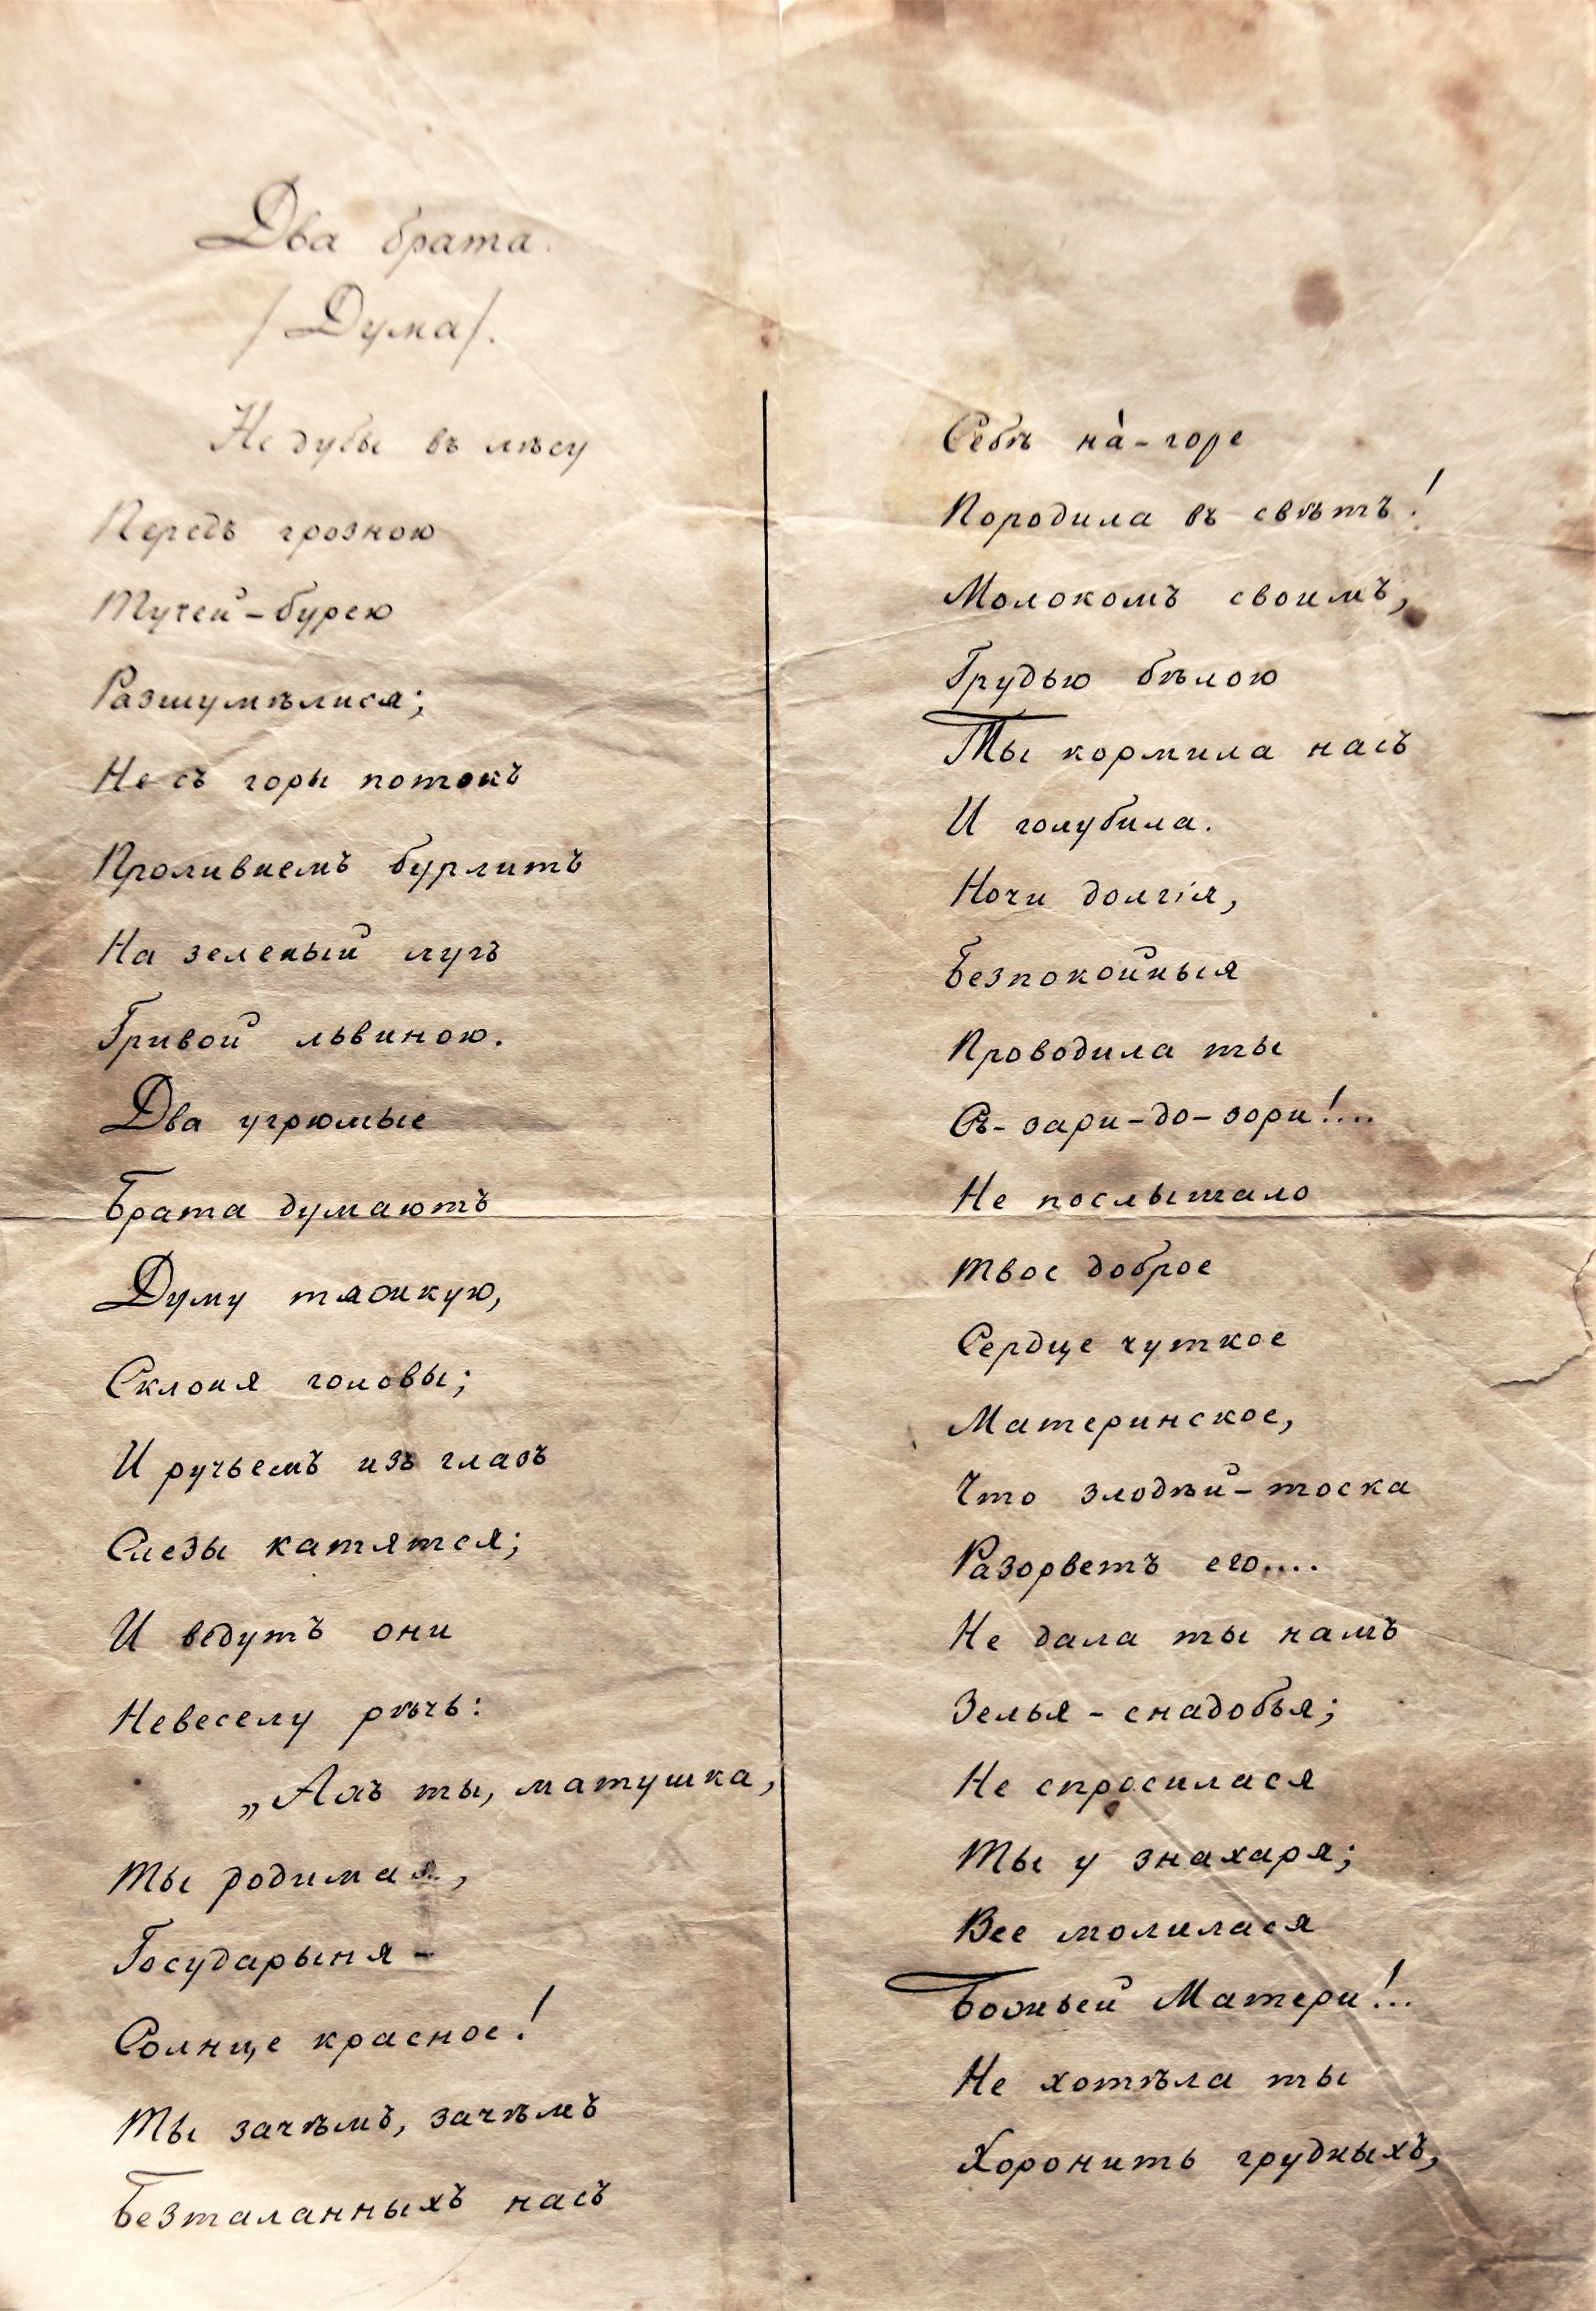 Два брата.
/Дума/.
Не дубы въ лѣсу
Передъ грозною
Тучей-бурею
Разшумѣлися;
Не съ горы потокъ
Проливнемъ бурлитъ
На зеленый лугъ
Гривой львиною.
Два угрюмые
Брата думаютъ
Думу тяжкую,
Склоня головы;
И ручьемъ изъ глазъ
Слезы катятся;
И ведутъ они
Невеселу рѣчь:
„Ахъ ты, матушка,
Ты родимая,
Государыня -
Солнце красное!
Ты зачѣмъ, зачѣмъ
Безталанныхъ насъ
Себѣ на́-горе
Породила въ свѣтъ!
Молокомъ своимъ,
Грудью бѣлою
Ты кормила насъ
И голубила.
Ночи долгія,
Безпокойныя
Проводила ты
Съ-зари-до-зори!...
Не послышало
Твое доброе
Сердце чуткое
Материнское,
Что злодѣй-тоска
Разорветъ его....
Не дала ты намъ
Зелья - снадобья;
Не спросилася
Ты у знахаря;
Все молилася
Божьей Матери!..
Не хотѣла ты
Хоронить грудныхъ,